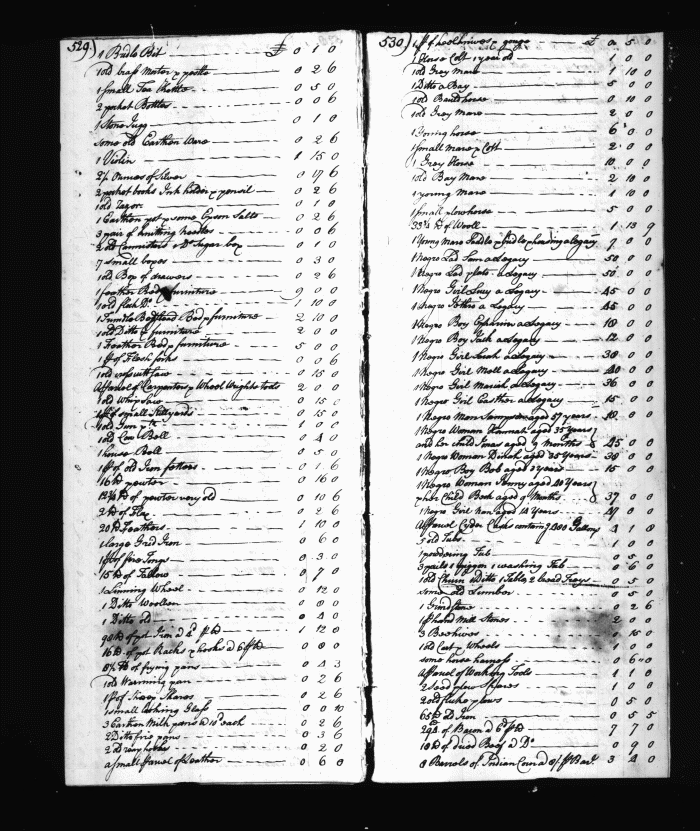 529.)
1 Bridle Bit £ 0 1 0
1 old brass Mortar & pestle 0 2 6
1 Small Tea Kettle 0 5 0
2 pocket Bottles 0 0 6
1 Stone Jugg 0 1 0
Some old Earthen Ware 0 2 6
1 Violin 1 15 0
2½ Ounces of Silver 0 17 6
2 pocket books Ink holder & pencil 0 2 6
1 old Razor 0 1 0
1 Earthen pot & some Epsom Salts 0 2 6
3 pair of knitting needles 0 0 6
2 old Cannisters & Do. Sugar box 0 1 0
7 small boxes 0 3 0
1 old Box of drawers 0 2 6
1 feather Bed & furniture 9 0 0
1 old flock Do. 1 10 0
1 Trundle Bedstead Bed & furniture 2 10 0
1 old Ditto & furniture 2 0 0
1 Feather Bed & furniture 5 0 0
1 pr of Flesh forks 0 0 6
1 old cross cut saw 0 15 0
A parcel of Carpenters & Wheel Wrights tools 2 0 0
1 old Whip Saw 0 15 0
1 pr of small Stillyards 0 15 0
1 old Gun 1 0 0
1 old Cow Bell 0 4 0
1 house Bell 0 5 0
1 pr of old Iron fetters 0 1 6
16 lb pewter 0 16 0
12¾ lb of pewter very old 0 10 6
2 lb of Flax 0 2 6
20 lb Feathers 1 10 0
1 large Grid Iron 0 6 0
1 pr of fire Tongs 0 3 0
15 lb of Tallow 0 7 0
1 Linning Wheel 0 12 0
1 Ditto Woollen 0 8 0
1 Ditto old 0 4 0
98 lb of pot Iron a 4d pr lb 1 12 0
16 lb of pot Racks & hooks a 6 pr lb 0 8 0
8½ lb of frying pans 0 4 3
1 old Warming pan 0 2 6
1 pr of Sheep Shears 0 2 6
1 small looking Glass 0 0 10
3 Earthen Milk pans a 10d each 0 2 6
2 Ditto fire pans 0 3 6
2 Drawg knives 0 2 0
a small parcel of Leather 0 6 0
530)
1 pr of knives & gouge £ 0 5 0
1 Horse Colt 1 year old 1 0 0
1 old Grey Mare 1 10 0
1 Ditto a Bay 5 0 0
1 old horse 0 10 0
1 old Grey Mare 2 0 0
1 Young horse 6 0 0
1 Small Mare & Colt 2 0 0
1 Grey Horse 10 0 0
1 old Bay Mare 2 10 0
1 young Mare 1 10 0
1 Small plow horse 5 0 0
33¾ lb of Wooll 1 13 9
1 Young Mare Saddle & bridle & housing a legacy 9 0 0
1 Negro Lad Sam a Legacy 50 0 0
1 Negro Lad a Legacy 50 0 0
1 Negro Girl Lucy a Legacy 45 0 0
1 Negro Esther a Legacy 45 0 0
1 Negro Boy Ephrim a Legacy 18 0 0
1 Negro Boy Jack a Legacy 12 0 0
1 Negro Girl Sarah a Legacy 30 0 0
1 Negro Girl Moll a Legacy 40 0 0
1 Negro Girl Mariah a Legacy 36 0 0
1 Negro Girl Easther a Legacy 15 0 0
1 Negro Man Sampson aged 57 years 40 0 0
1 Negro Woman Hannah aged 35 years
and her Child Isaas aged 9 months 45 0 0
1 Negro Woman Dinah aged 35 Years 30 0 0
1 Negro Boy Bob aged 3 Years 15 0 0
1 Negro Woman Jenny aged 40 Years
& her Child Beck aged 9 Months 37 0 0
1 Negro Girl Nan aged 14 Years 47 0 0
A parcel Cyder Casks containg 1300 Gallons 4 1 8
5 old Tubs 1 0 0
1 powdering Tub 0 5 0
3 pails 1 piggin 1 washing Tub 0 6 0
1 old Churn 1 Ditto 1 Table, 2 bread Trays 0 5 0
Some old Lumber 0 5 0
1 Grindstone 0 2 6
1 pr hand Mill Stones 2 0 0
3 Beehives 1 15 0
1 old Cart & Wheels 1 0 0
some horse harness 0 6 0
A parcel of Working Tools 1 1 0
2 Seed plow Shares 1 0 0
2 old fluke plows 0 5 0
65 lb old Iron 0 5 5
294 of Bacon a 6d pr lb 7 7 0
18 lb of dried Beef a Do. 0 9 0
8 Barrels of Indian Corn a 8/ pr Barl. 3 4 0